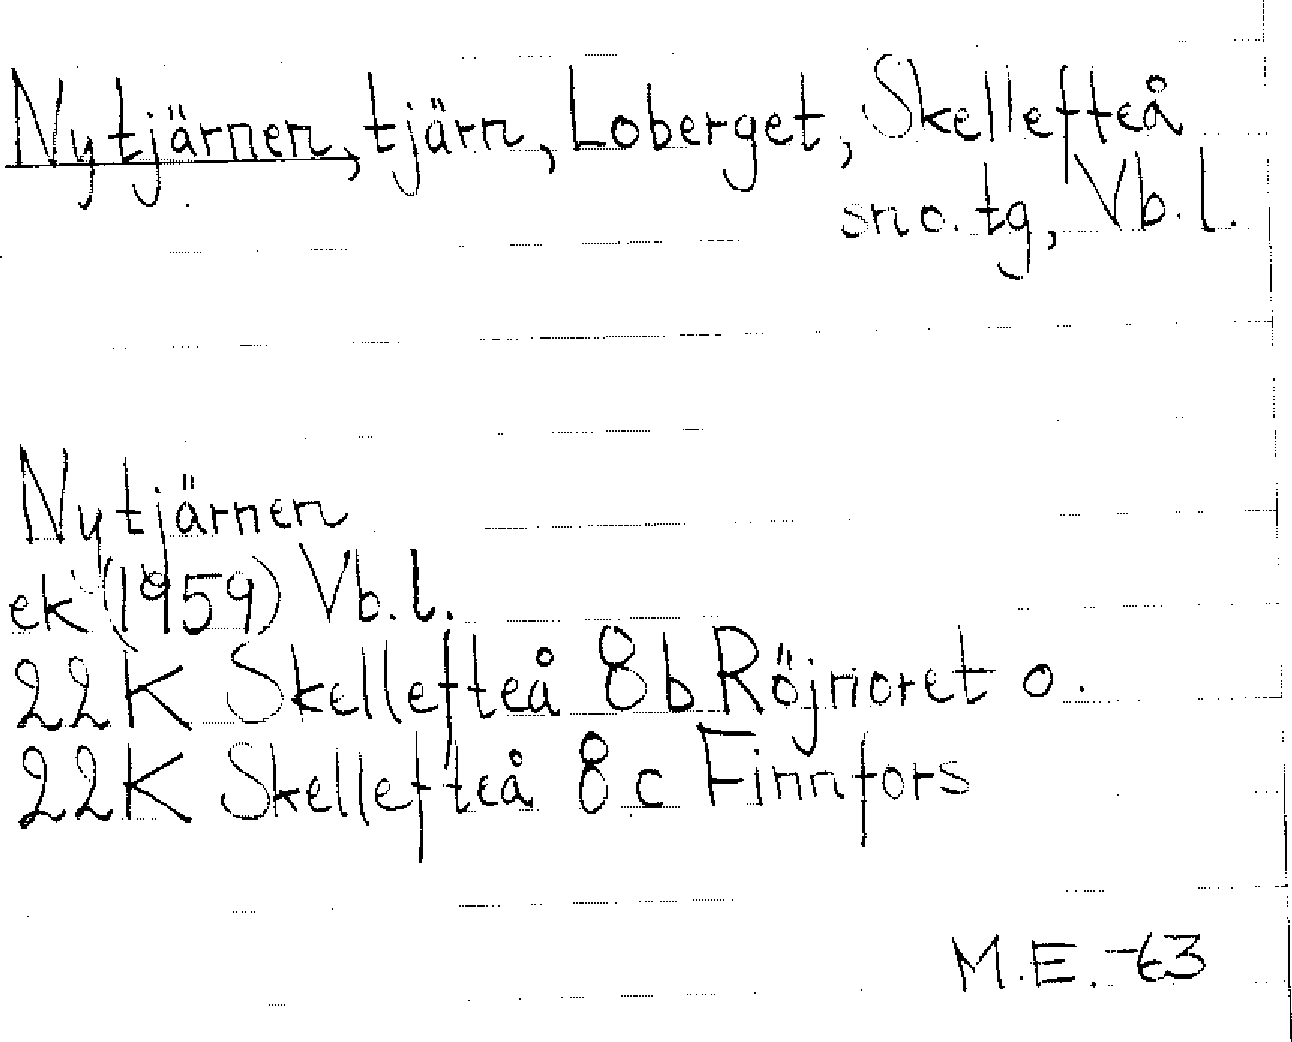 Nytjärnen, tjärn, Loberget, Skellefteå
sno. tg, Vb. l.
Nytjärnen
ek (1959) Vb. l.
22K Skellefteå 8b Röjnoret o.
22K Skellefteå 8c Finnfors
M.E. -63